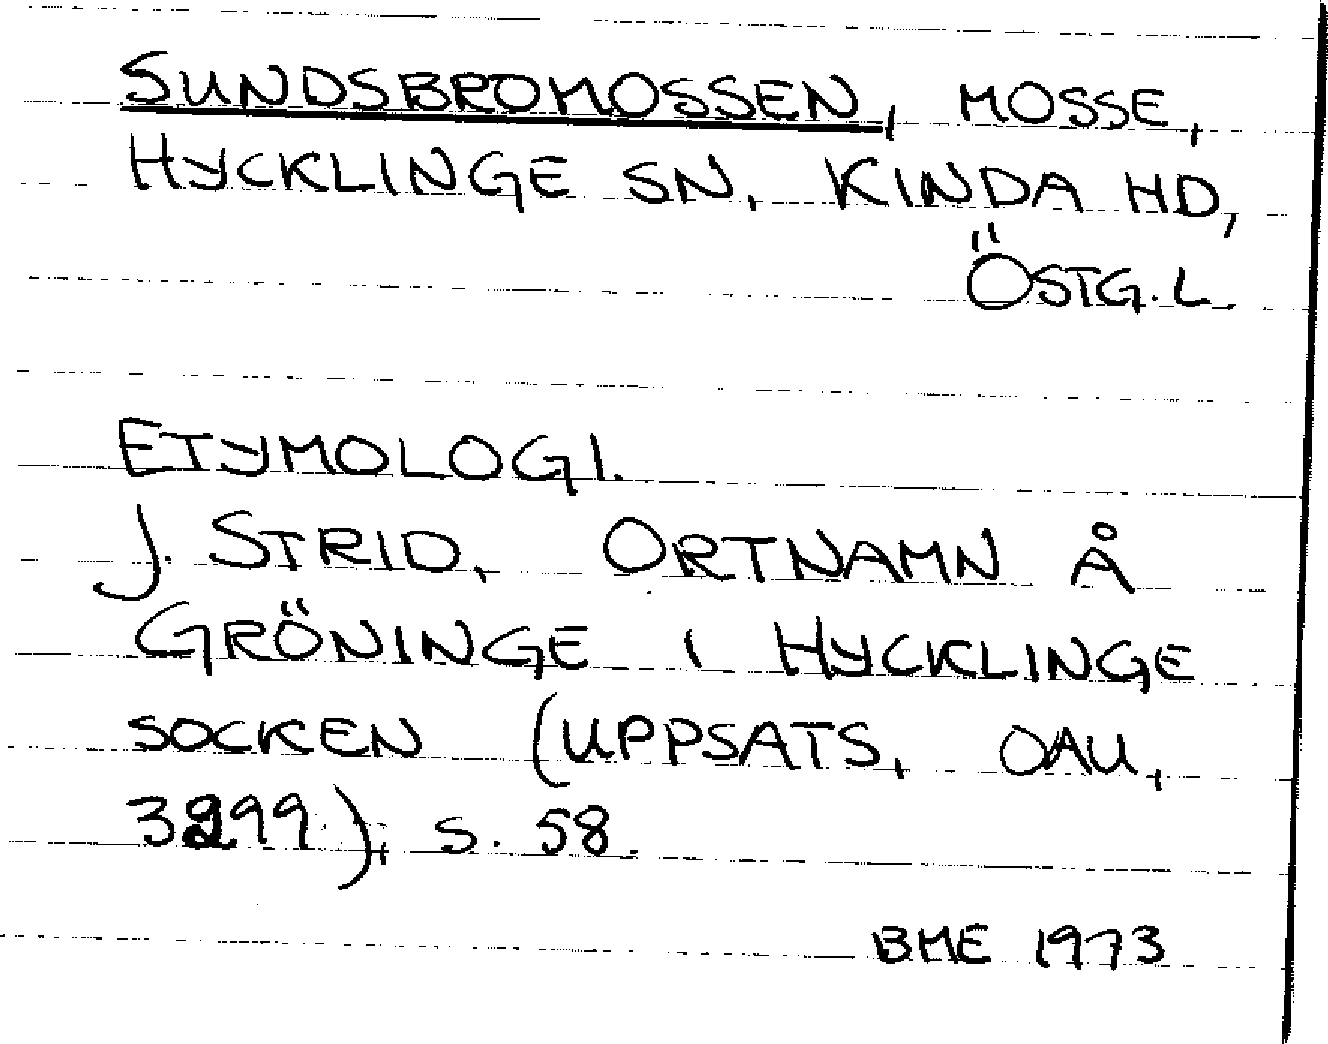 SUNDSBROMOSSEN, MOSSE,
HYCKLINGE SN, KINDA HD,
ÖSTG.L.
ETYMOLOGI.
J. STRID, ORTNAMN Å
GRÖNINGE I HYCKLINGE
SOCKEN (UPPSATS, OAU,
3299), S. 58.
BME 1973